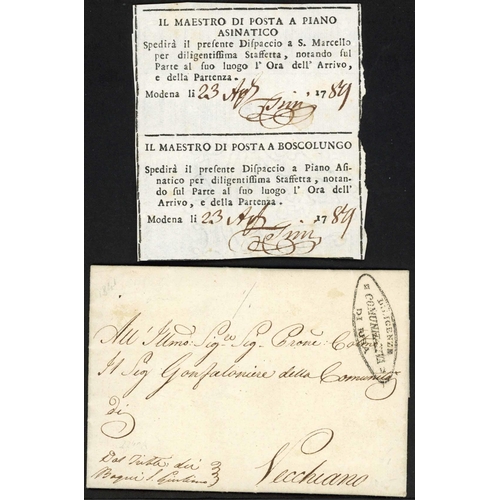 IL MAESTRO DI POSTA A PIANO
ASINATICO
Spedirà il presente Dispaccio a S. Marcello
per diligentissima Staffetta, notando sul
Parte al suo luogo l' Ora dell' Arrivo,
e della Partenza.
Modena li 23 , 1789
IL MAESTRO DI POSTA A BOSCOLUNGO
Spedirà il presente Dispaccio a Piano Asi-
natico per diligentissima Staffetta, notan-
do sul Parte al suo luogo l' Ora dell'
Arrivo, e della Partenza.
Modena li 23 , 1789
DILIGENZE
E COMUNITATIVE
All' Illmo: Sigre Sig Prone:
Il Sig Gonfaloniere della Comunità
di
Vecchiano